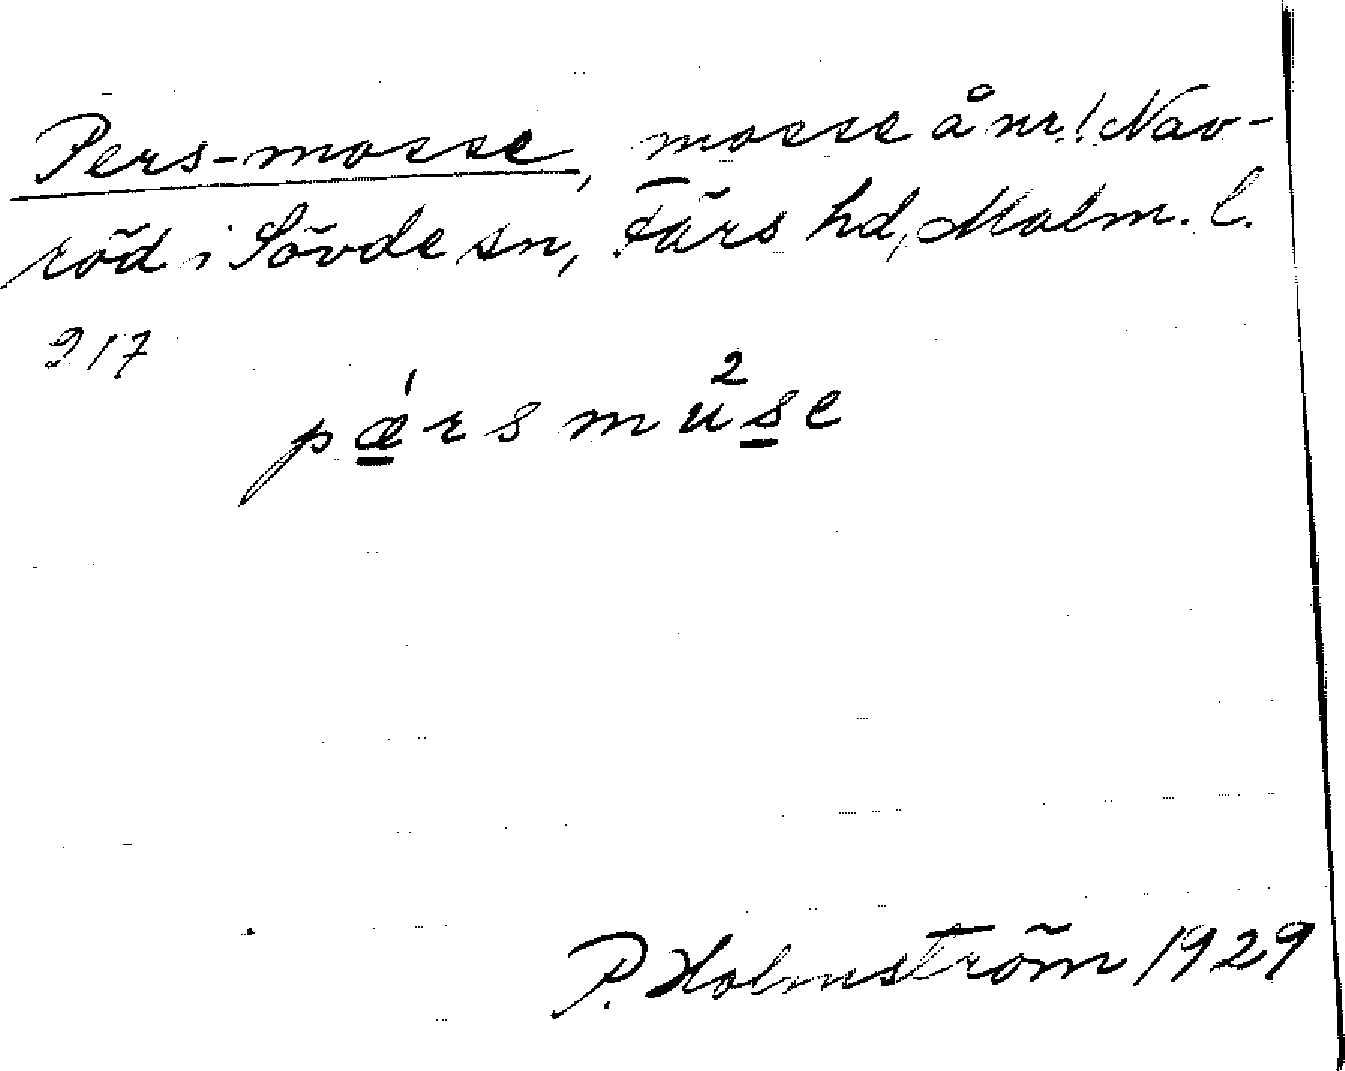 Pers-mosse, mosse å nr 1 Nav-
röd i Sövde sn, Färs hd, Malm. l.
217
pǽ̲rsmu²s̲e
P. Holmström 1929